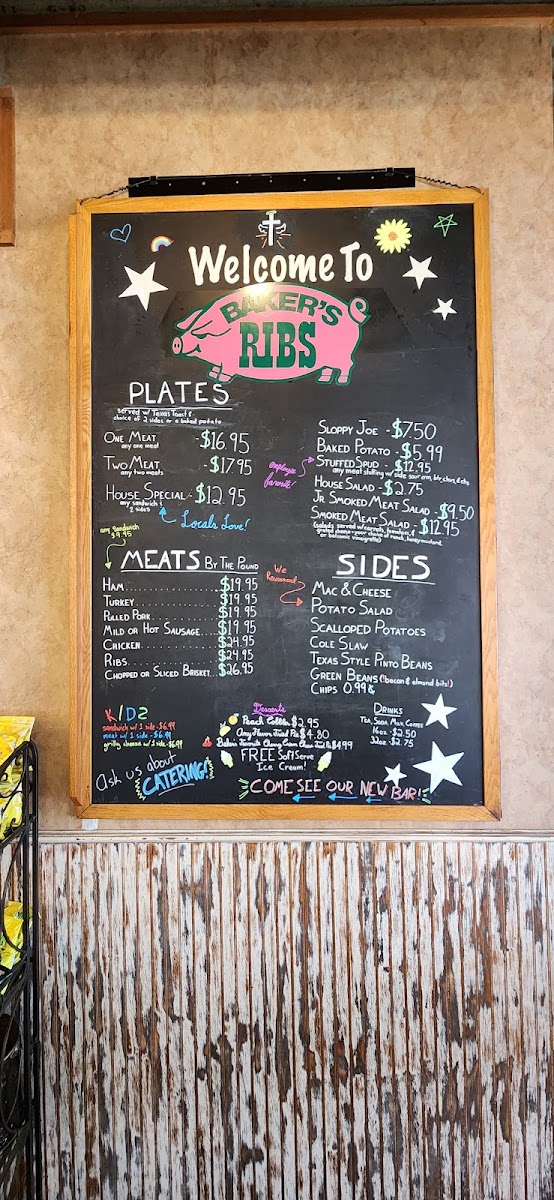 Welcome To
BAKER'S
RIBS
PLATES
served w/ Texas Toast &
choice of 2 sides or a baked potato
ONE MEAT - $16.95
any one meat
TWO MEAT - $17.95
any two meats
HOUSE SPECIAL - $12.95
any sandwich &
2 sides
Locals Love!
any sandwich
$9.95
SLOPPY JOE - $7.50
BAKED POTATO - $5.99
STUFFED SPUD - $12.95
any meat stuffing w/ side sour crm, btr, chvs, & chs
employee
favorite!
HOUSE SALAD - $2.75
JR SMOKED MEAT SALAD - $9.50
SMOKED MEAT SALAD - $12.95
(salads served w/ carrots, tomatoes, &
grated cheese - your choice of ranch, honey mustard,
or balsamic vinaigrette)
MEATS BY THE POUND
HAM $19.95
TURKEY $19.95
PULLED PORK $19.95
MILD OR HOT SAUSAGE $19.95
CHICKEN $24.95
RIBS $24.95
CHOPPED OR SLICED BRISKET $26.95
We
Recommend
SIDES
MAC & CHEESE
POTATO SALAD
SCALLOPED POTATOES
COLE SLAW
TEXAS STYLE PINTO BEANS
GREEN BEANS (bacon & almond bits!)
CHIPS 0.99¢
KIDZ
sandwich w/ 1 side - $6.99
meat w/ 1 side - $6.99
grilly cheese w/ 1 side - $6.99
Ask us about
CATERING!
Desserts
Peach Cobbler $2.95
Any Flavor Fried Pie $4.80
$4.99
FREE Soft Serve
Ice Cream!
DRINKS
TEA, SODA, MILK, COFFEE
16oz - $2.50
32oz - $2.75
COME SEE OUR NEW BAR!